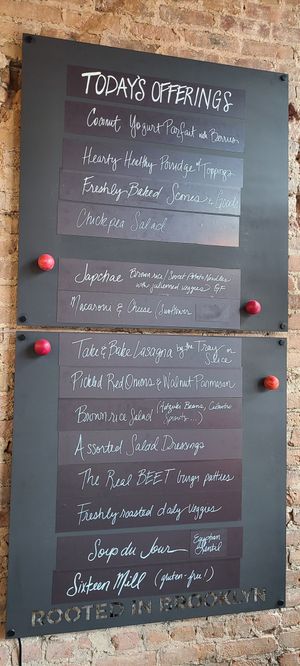 TODAY'S OFFERINGS
Coconut Yogurt Parfait with Berries
Hearty Healthy Porridge & Toppings
Freshly Baked Scones & Goods
Chickpea Salad
Japchae Brown rice/Sweet Potato Noodles
with julienned veggies GF
Macaroni & Cheese/Sunflower
Take & Bake Lasagna by the Tray or
Slice
Pickled Red Onions & Walnut Parmesan
Brown rice Salad (Adzuki Beans, Cilantro
Sprouts...)
Assorted Salad Dressings
The Real BEET burger patties
Freshly roasted daily veggies
Soup du Jour Egyptian
Lentil
Sixteen Mill (gluten-free!)
ROOTED IN BROOKLYN